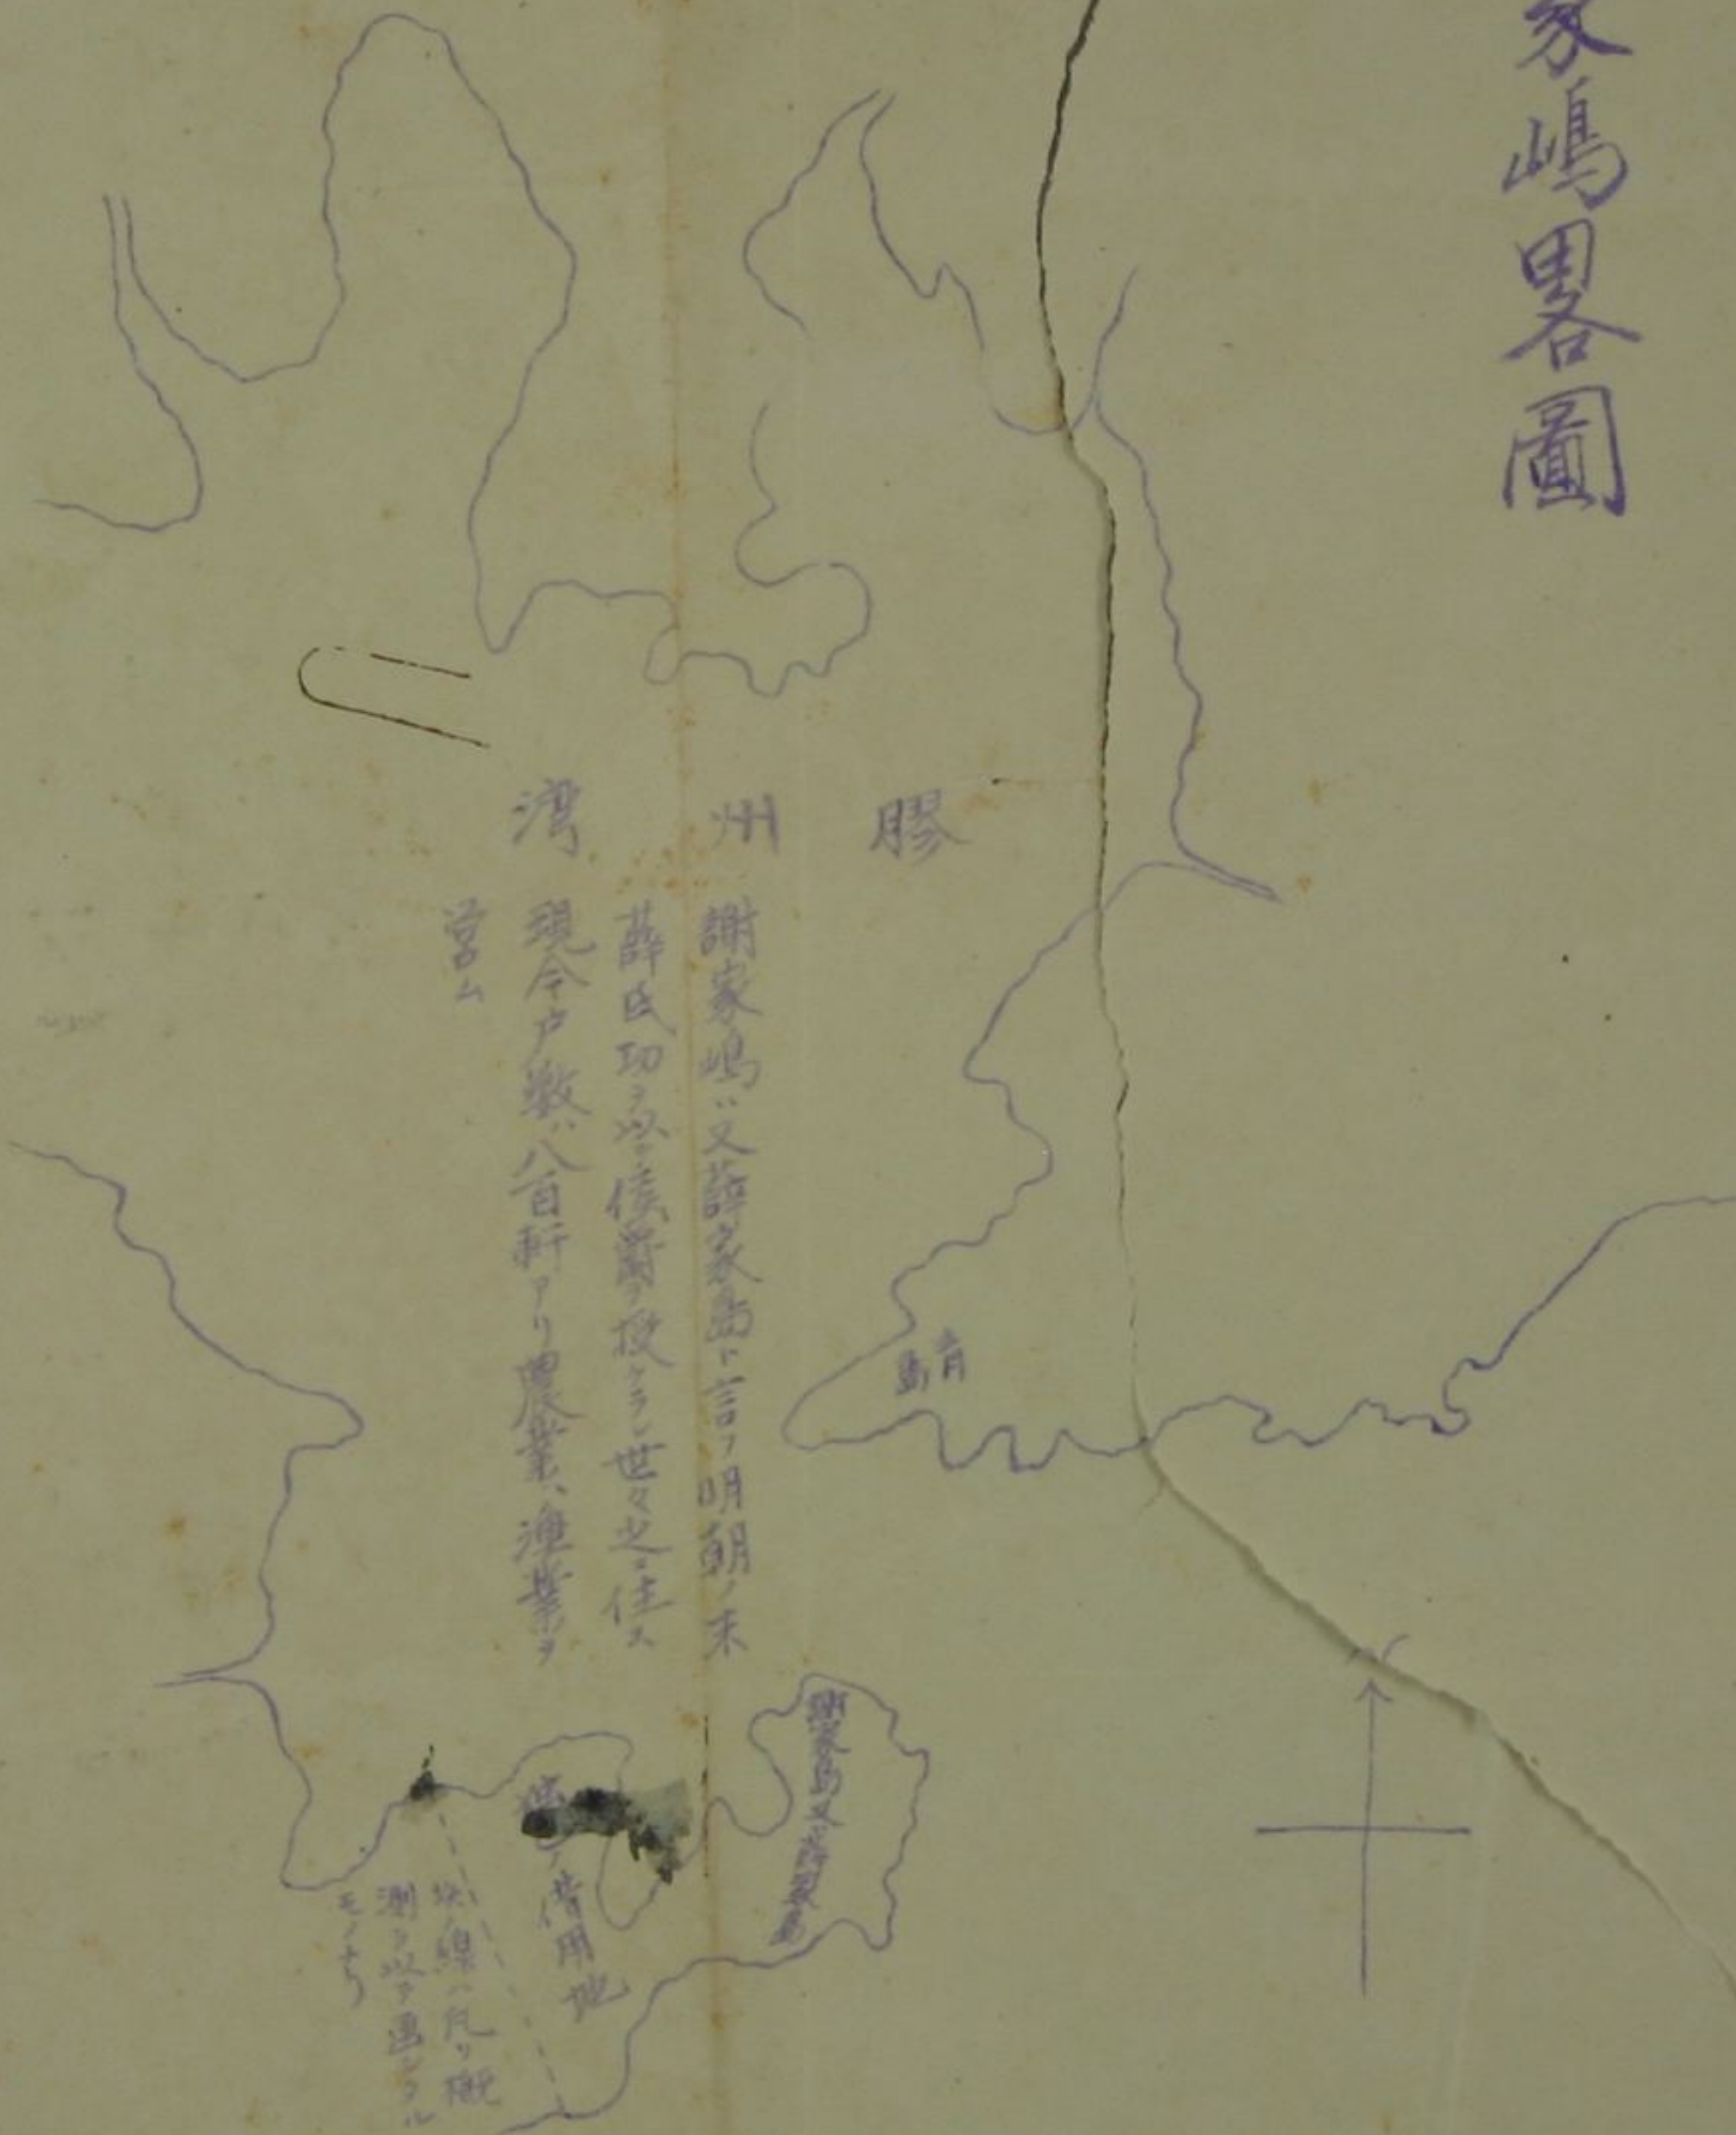 家嶋畧圖
膠州湾
謝家嶋ハ又薛家島ト言フ明朝ノ末
薛氏功ヲ以テ侯爵ヲ授ケラレ世々之ニ住ス
現今戸数ハ八百軒アリ農業ハ漁業ヲ
営ム
青島
謝家島又ハ薛家島
ノ借用地
此線ハ凡ソ概
測ヲ以テ画シタル
モノナリ